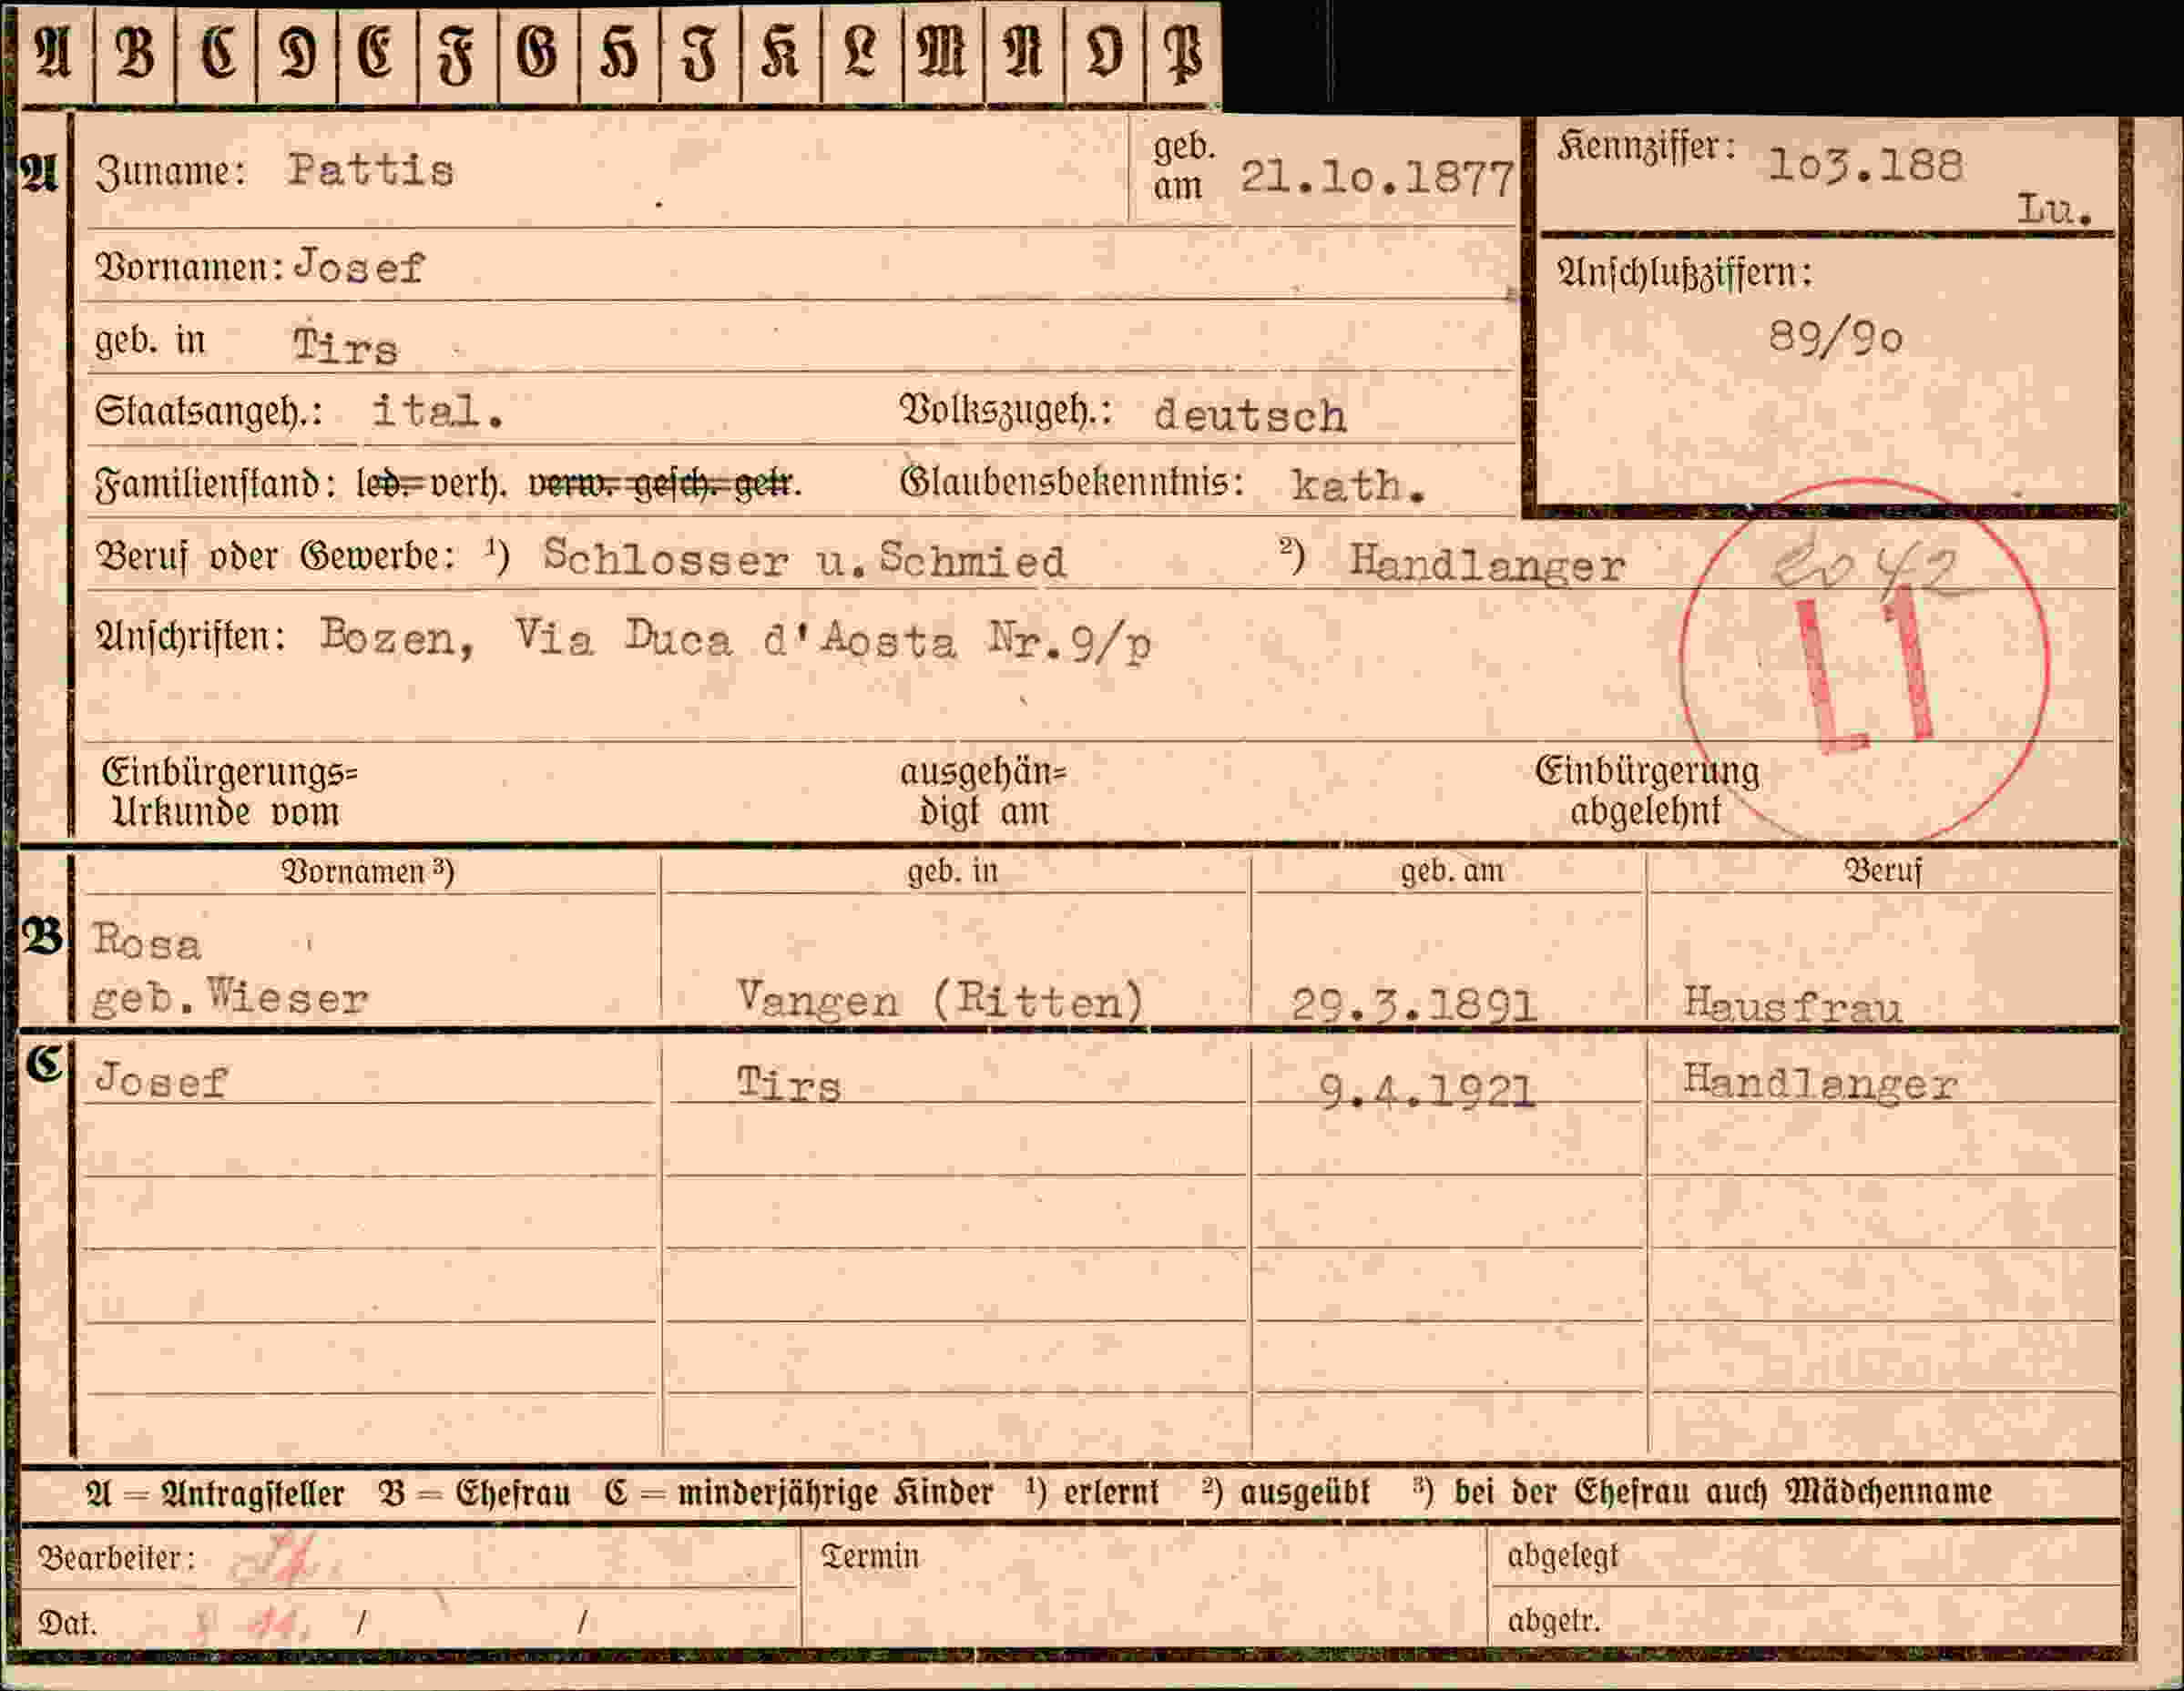 A B C D E F G H I K L M N O P
A Zuname: Pattis geb. am 21.1o.1877 Kennziffer: 1o3.188 Lu.
Vornamen: Josef
Anschlußziffern:
geb. in Tirs 89/9o
Staatsangeh.: ital. Volkszugeh.: deutsch
Familienstand: led. verh. verw. gesch. getr. Glaubensbekenntnis: kath.
Beruf oder Gewerbe: 1) Schlosser u. Schmied 2) Handlanger
L1
Anschriften: Bozen, Via Duca d'Aosta Nr.9/p
Einbürgerungs= ausgehän= Einbürgerung
Urkunde vom digt am abgelehnt
Vornamen 3) geb. in geb. am Beruf
B Rosa
geb. Wieser Vangen (Ritten) 29.3.1891 Hausfrau
C Josef Tirs 9.4.1921 Handlanger
A = Antragsteller B = Ehefrau C = minderjährige Kinder 1) erlernt 2) ausgeübt 3) bei der Ehefrau auch Mädchenname
Bearbeiter: Termin abgelegt
Dat. / / abgetr.